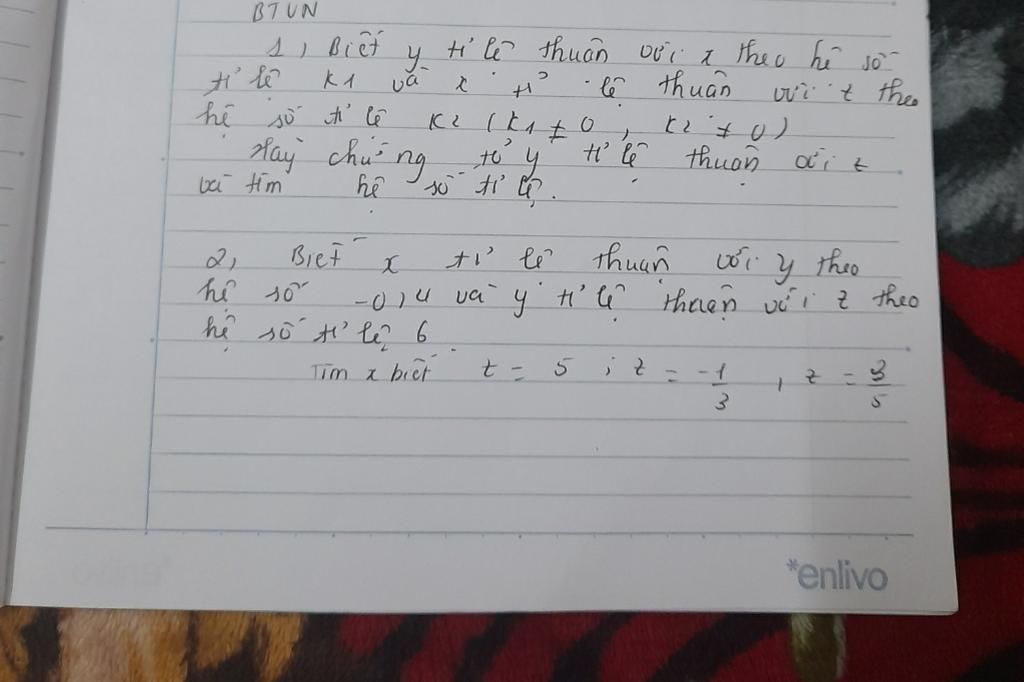 BTVN
1, Biết y tỉ lê thuân với x theo hê số
tỉ lê k1 và x tỉ lệ thuân với z theo
hệ số tỉ lê k2 (k1 ≠ 0, k2 ≠ 0)
Hãy chứng tỏ y tỉ lệ thuận với z
và tìm hệ số tỉ lệ.
2, Biết x tỉ lê thuân với y theo
hệ số -0,4 và y tỉ lệ thuận với z theo
hệ số tỉ lê 6
Tìm x biết z = 5 ; z = -1/3 , z = 3/5
*enlivo